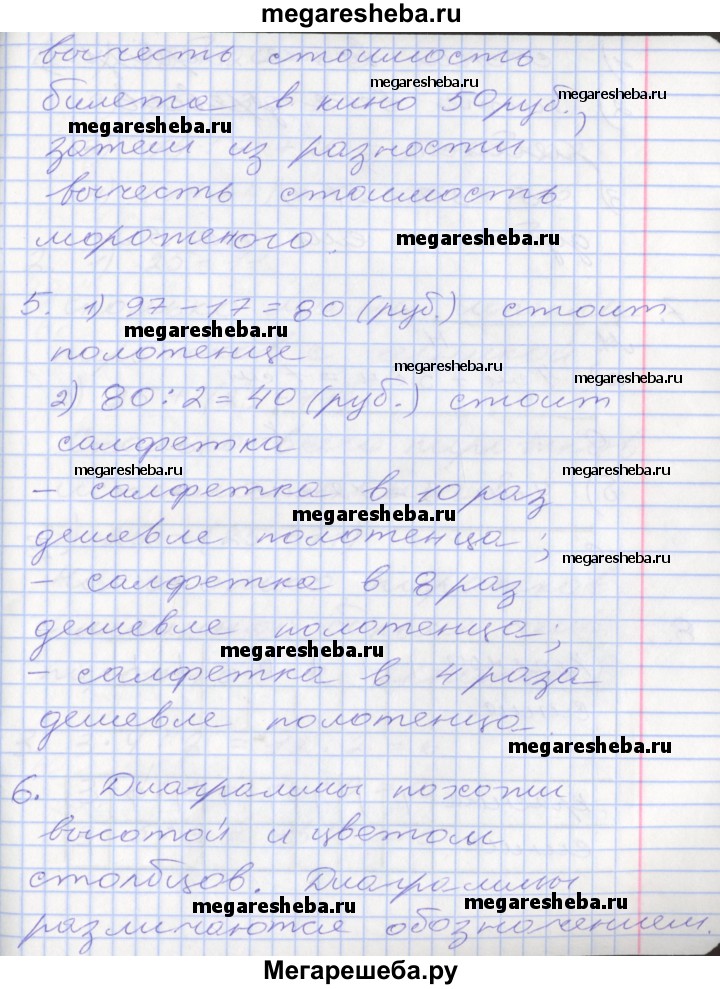 megaresheba.ru
вычесть стоимость
megaresheba.ru
билета в кино 50 руб.,
megaresheba.ru
megaresheba.ru
затем из разности
вычесть стоимость
мороженого.
megaresheba.ru
5. 1) 97 - 17 = 80 (руб.) стоит
megaresheba.ru
полотенце
megaresheba.ru
megaresheba.ru
2) 80 : 2 = 40 (руб.) стоит
салфетка
megaresheba.ru
megaresheba.ru
- салфетка в 10 раз
megaresheba.ru
дешевле полотенца;
megaresheba.ru
- салфетка в 8 раз
дешевле полотенца;
megaresheba.ru
- салфетка в 4 раза
дешевле полотенца.
megaresheba.ru
6. Диаграммы похожи
высотой и цветом
столбцов. Диаграммы
megaresheba.ru
megaresheba.ru
различаются обозначением.
Мегарешеба.ру